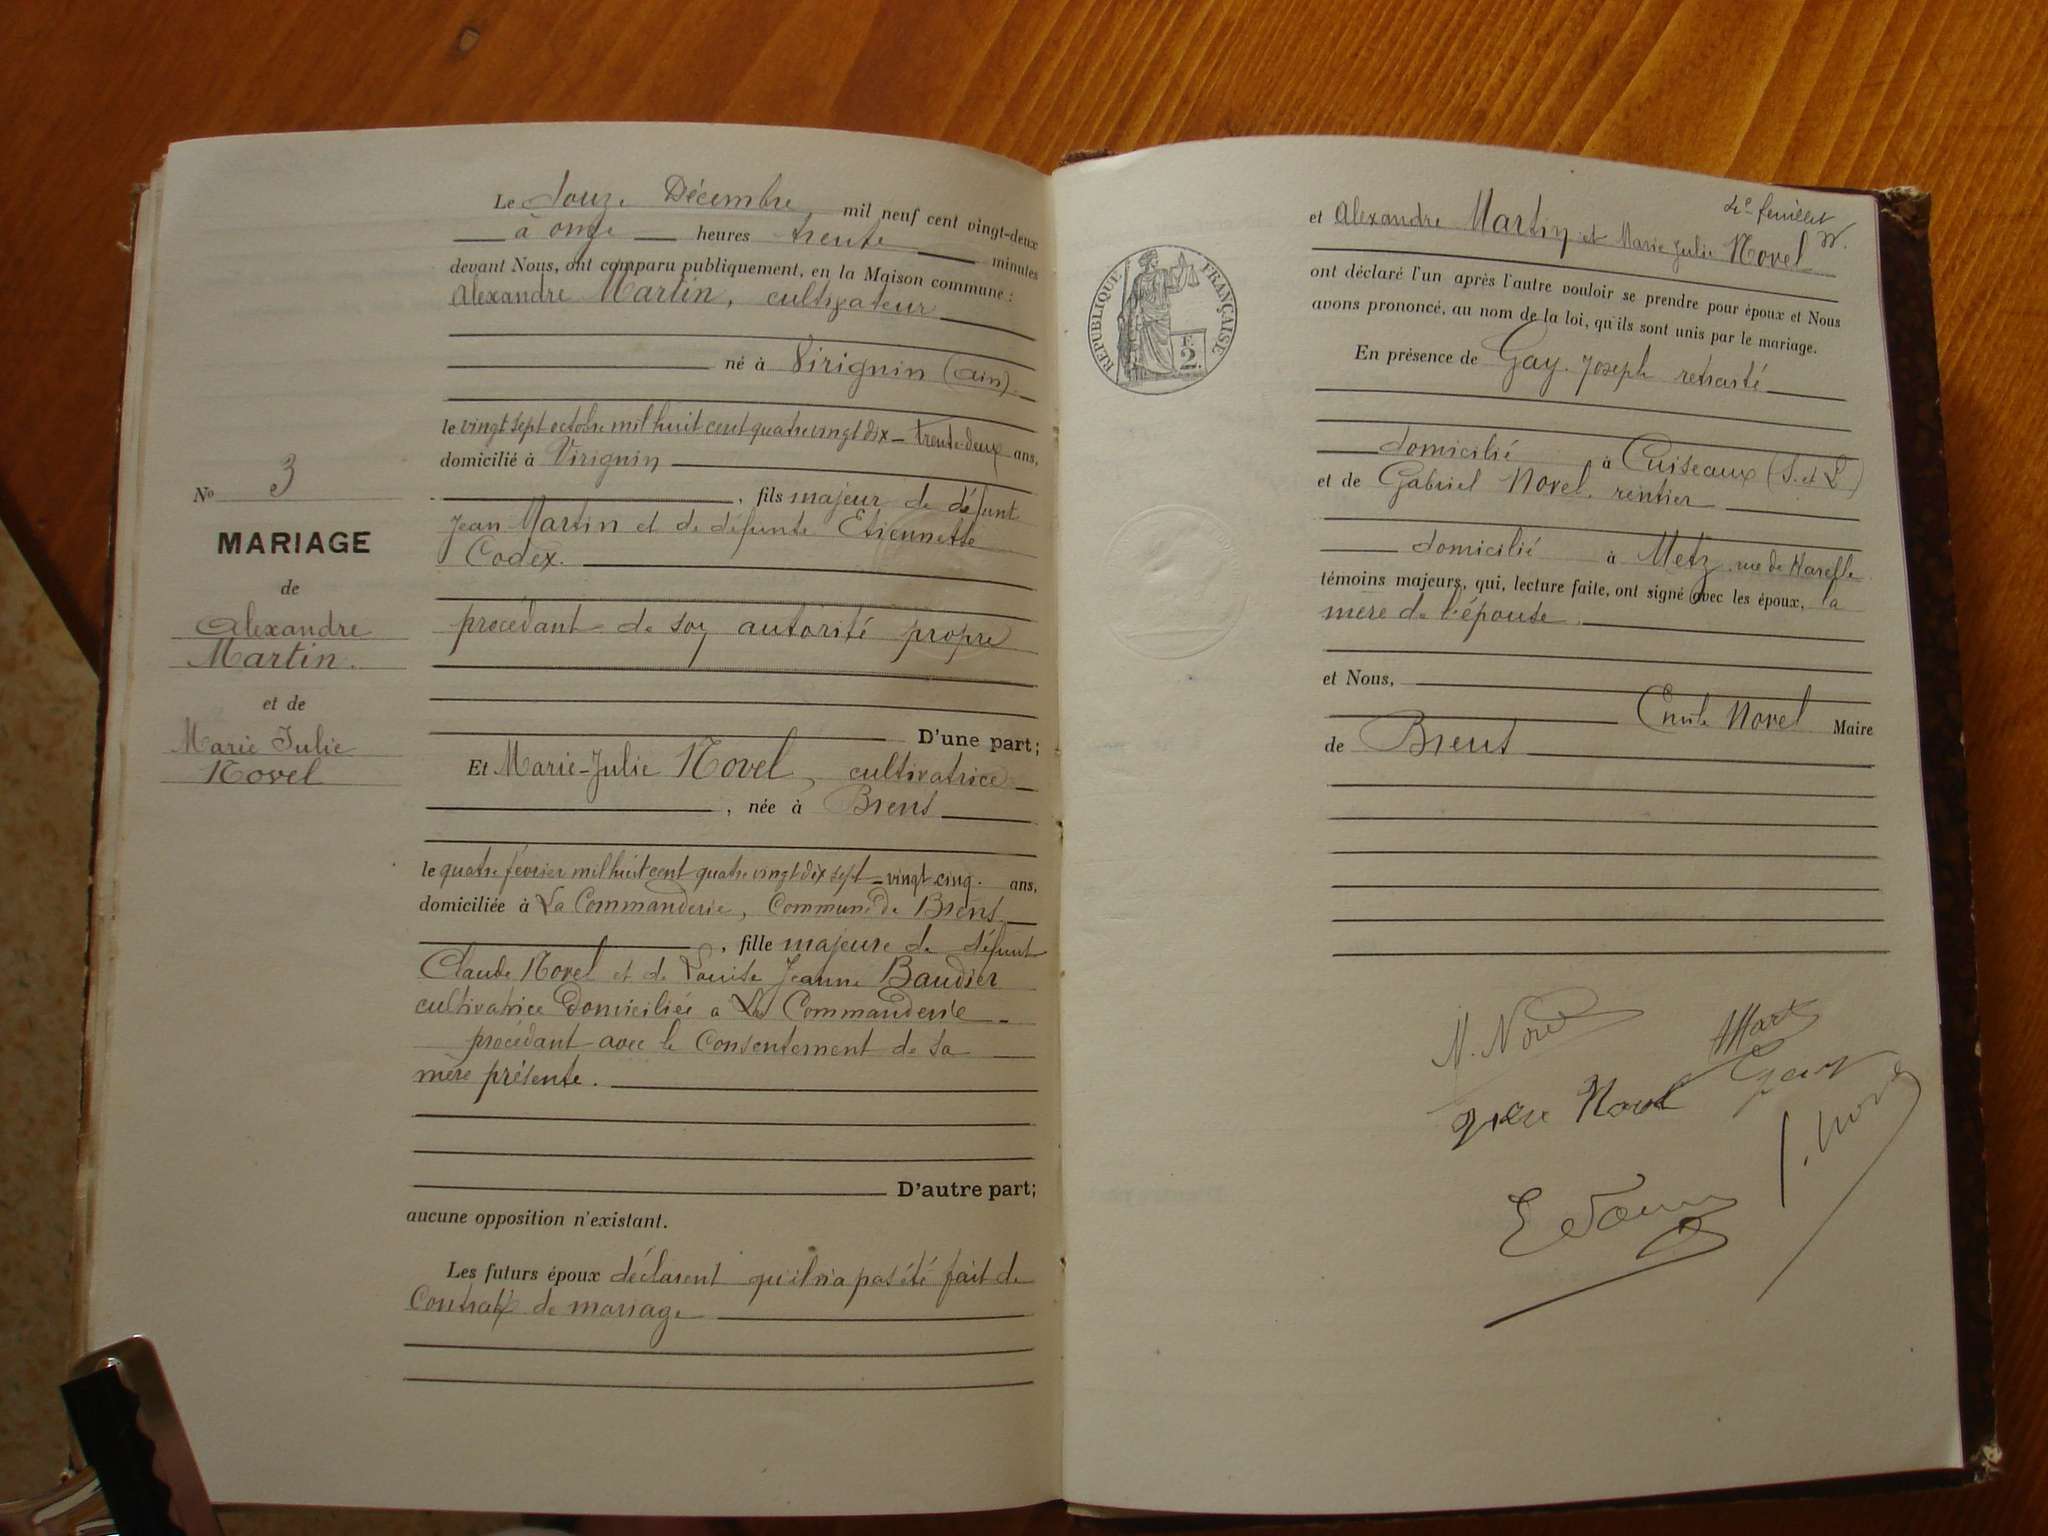 Le douze Décembre mil neuf cent vingt-deux
à onze heures trente minutes
devant Nous, ont comparu publiquement, en la Maison commune :
Alexandre Martin, cultivateur
né à Virignin (Ain)
le vingt sept octobre mil huit cent quatre vingt dix _ trente-deux ans,
domicilié à Virignin
, fils majeur de défunt
Jean Martin et de défunte Etiennette
Codex.
procédant de son autorité propre
D'une part;
No 3
MARIAGE
de
Alexandre
Martin.
et de
Marie Julie
Novel
Et Marie-Julie Novel, cultivatrice
, née à Brens
le quatre février mil huit cent quatre vingt dix sept _ vingt cinq. ans,
domiciliée à La Commanderie, Commune de Brens
, fille majeure de défunt
Claude Novel et de Louise Jeanne Baudier
cultivatrice domiciliée a La Commanderie
procédant avec le Consentement de sa
mère présente.
D'autre part;
aucune opposition n'existant.
Les futurs époux déclarent qu'il n'a pas été fait de
Contrat de mariage
4e feuillet
et Alexandre Martin et Marie Julie Novel
ont déclaré l'un après l'autre vouloir se prendre pour époux et Nous
avons prononcé, au nom de la loi, qu'ils sont unis par le mariage.
RÉPUBLIQUE FRANÇAISE
F. 2.
En présence de Gay Joseph retraité
domicilié à Cuiseaux (S. et L)
et de Gabriel Novel, rentier
domicilié à Metz rue de
témoins majeurs, qui, lecture faite, ont signé avec les époux, la
mère de l'épouse.
et Nous,
Emile Novel Maire
de Brens
M. Novel
Novel